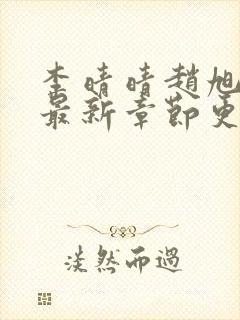 李晴晴趙旭
最新章節更
淡然而過